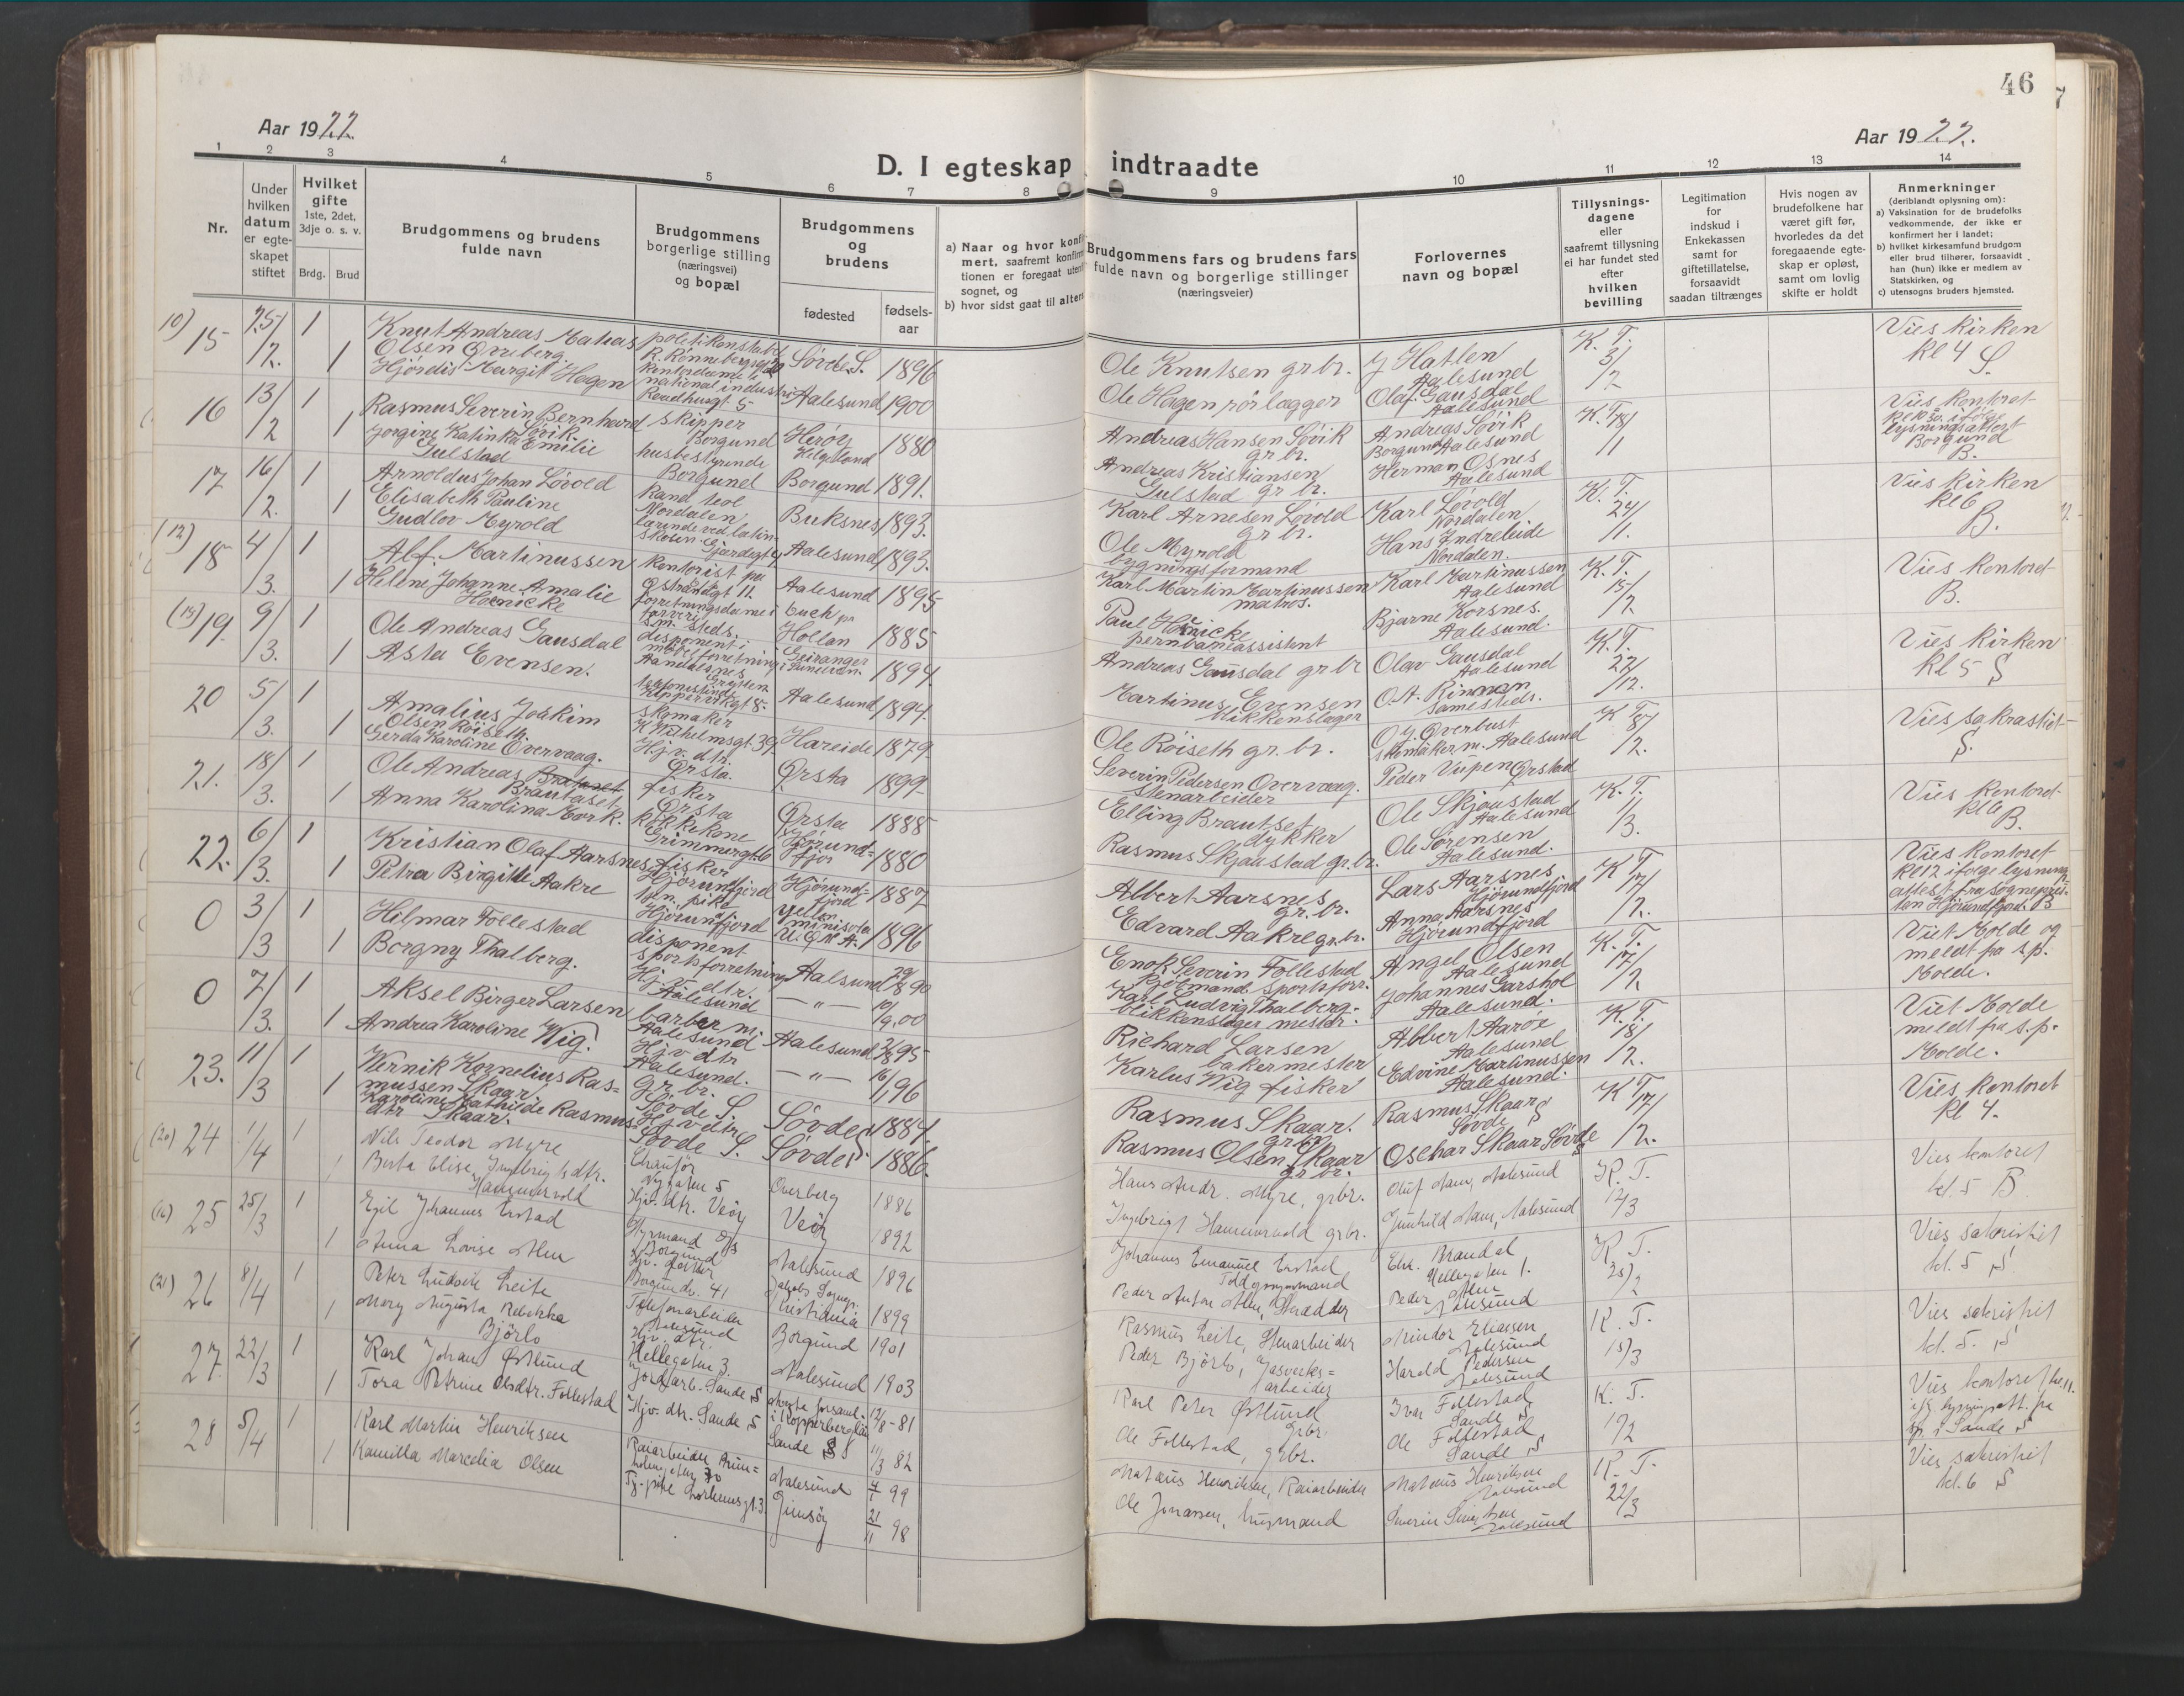 46
Aar 1922.
Aar 1922.
D. I egteskap indtraadte
1 2 3 4 5 6 7 8 9 10 11 12 13 14
Nr.
Under hvilken datum er egteskapet stiftet
Hvilket gifte 1ste, 2det, 3dje o. s. v.
Brdg. Brud
Brudgommens og brudens fulde navn
Brudgommens borgerlige stilling (næringsvei) og bopæl
Brudgommens og brudens
fødested
fødsels-aar
a) Naar og hvor konfir
mert, saafremt konfirm
tionen er foregaat uten
sognet, og
b) hvor sidst gaat til alters
Brudgommens fars og brudens fars
fulde navn og borgerlige stillinger
(næringsveier)
Forlovernes
navn og bopæl
Tillysnings-
dagene
eller
saafremt tillysning
ei har fundet sted
efter
hvilken
bevilling
Legitimation
for
indskud i
Enkekassen
samt for
giftetillatelse,
forsaavidt
saadan tiltrænges
Hvis nogen av
brudefolkene har
været gift før,
hvorledes da det
foregaaende egte-
skap er opløst,
samt om lovlig
skifte er holdt
Anmerkninger
(deriblandt oplysning om):
a) Vaksination for de brudefolks
vedkommende, der ikke er
konfirmert her i landet;
b) hvilket kirkesamfund brudgom
eller brud tilhører, forsaavidt
han (hun) ikke er medlem av
Statskirken, og
c) utensogns bruders hjemsted.
10) 15 25/2. 1 Knut Andreas Matias Olsen Ørreberg. politikonstabel Søvde S. 1896 Ole Knutsen gr.br. J Hatlen Aalesund K. T. 3/2 Vies kirken kl 4 S.
1 Hjördis Margit Hagen Raadhusgt. 5 Aalesund 1900 Ole Hagen rörlægger Olaf Gausdal Aalesund
16 13/2 1 Rasmus Severin Bernhard Søvik. skipper Borgund Herøy Helgeland 1880 Andreas Hansen Søvik gr br. Andreas Søvik Borgund Aalesund K. T. Vies kontoret lysningsattest Borgund B.
1 Jorgine Katinka Emilie Gulstad husbestyrende Borgund Borgund 1891. Andreas Kristiansen Gulstad gr br. Herman Osnes Aalesund
17 16/2. 1 Arnoldus Johan Løvold Kand teol Nordalen Buksnes 1893. Karl Arnesen Løvold gr br. Karl Løvold Nordalen K. T. 24/1. Vies kirken kl 6 B.
1 Elisabeth Pauline Gudlov Myrold lærende ved latinskolen Aalesund 1893. Ole Myrold bygningsformand Hans Indreleide Nordalen.
(12) 18 4/3. 1 Alf. Martinussen kontorist Aalesund 1895 Karl Martin Martinussen matros. Karl Martinussen Aalesund K. T. 15/2 Vies kontoret B.
1 Helene Johanne Amalie Hoenicke forretningsdame Hollan 1885 Paul Hoenicke Bjarne Korsnes. Aalesund.
19. 9/3. 1 Ole Andreas Gausdal disponent i møbelforretning Aandalsnes Geiranger 1894. Andreas Gausdal gr br Olav Gausdal Aalesund K. T. 27/12. Vies kirken kl 5 S
1 Asta Evensen. Aalesund 1894. Martinus Evensen blikkenslager O. A. Rinnan samesteds.
20 5/3. 1 Amalius Joakim Olsen Röiseth. skomaker Hareide 1879. Ole Röiseth gr. br. O J. Overbust skomakerm. Aalesund K T 8/2. Vies sakrastiet S.
1 Gerda Karoline Overvaag. Hj.v. dtr. Ørsta. Ørsta 1899 Severin Pedersen Overvaag. stenarbeider Peder Viupen Ørstad
21. 18/3. 1 Ole Andreas Brautaset. fisker Ørsta Ørsta 1888 Elling Brautset dykker Ole Skjaastad Aalesund K. T. 1/3. Vies kontoret kl 6 B.
1 Anna Karolina Mork. kokkekone Grimmergt. 6 Hjørundfjor 1880 Rasmus Skjaastad gr. br. Ole Sørensen Aalesund.
22. 6/3. 1 Kristian Olaf Aarsnes fisker Hjörundfjord Hjørundfjord 1887 Albert Aarsnes gr. br. Lars Aarsnes Hjörundfjord K T. 17/2. Vies kontoret kl 12 ifølge lysningsattest fra sogneprästen Hjörundfjord. B
1 Petra Birgitte Aakre Hjörundfjord minisota U. S. A. 1896 Edvard Aakre gr. br. Anna Aarsnes Hjörundfjord
0 3/3 1 Hilmar Follestad disponent sportsforretning Aalesund 29/8 90 Enok Severin Follestad Angel Olsen Aalesund K. T. 17/2 Viet Molde og meldt fra s.p. Molde.
1 Borgny Thalberg. Hj. v. dtr. Aalesund — „ — 10/9.00 Karl Ludvig Thalberg. blikkenslager mester. Johannes Garshol Aalesund.
0 7/3. 1 Aksel Birger Larsen barber m. Aalesund Aalesund 95 Richard Larsen bakermester Albert Aarøe Aalesund K. T. 18/2. Viet Molde meldt fra s.p. Molde.
1 Andrea Karoline Wig. Hj v. dtr Aalesund. — „ — 96 Karlus Wig fisker Edvine Martinussen Aalesund.
23. 11/3 1 Wernik Kornelius Rasmussen Skaar. gr. br. Søvde S. Søvde S. 1884. Rasmus Skaar. grbr. Rasmus Skaar Søvde S K T 17/2. Vies kontoret kl 4.
1 Karoline Mathilde Rasmusdtr Skaar. Hj v dtr Søvde S. Søvde S. 1886. Rasmus Olsen Skaar gr br. Oschar Skaar Søvde S
(20) 24 1/4 1 Nils Teodor Myre Chauför Nygaten 5 Overberg 1886 Hans Andr. Myre, grbr. Oluf Mam, Aalesund K. T. 12/3 Vies kontoret kl. 5 B
1 Berta Elise Ingebrigtsdtr. Hammervold Hjv. dtr. Veöy Veöy 1892 Ingebrigt Hammervold grbr. Gunhild Mam, Aalesund
(16) 25 25/3 1 Egil Johannes Erstad Styrmand Borgund Aalesund 1896 Johannes Emanuel Erstad Ehr. Mandal Hellegaten 1. K T. 25/2 Vies sakristiet kl. 5 S
1 Anna Lovise Alm Hjv. datter Kristiania 1899 Peder Anton Alm, skrædder Peder Alm Aalesund
(21) 26 8/4 1 Peter Ludvik Leite Telefonarbeider Aalesund Borgund 1901 Rasmus Leite, Stenarbeider Mindor Eliassen Aalesund K. T. 15/3 Vies sakristiet kl. 5. S
1 Mary Augusta Rebekka Björlo Hjv. dtr. Hellegaten 3. Aalesund 1903 Peder Björlo, Gasverksarbeider Harald Pedersen Aalesund
27. 22/3 1 Karl Johan Østlund Jordarb. Sande S i Kopperberglän 12/8-81 Karl Peter Østlund Grbr. Ivar Follestad Sande S K. T. Vies kontoret kl 11. lysningsatt. fra sp. i Sande S
1 Tora Petrine Olsdtr. Follestad Hjv. dtr. Sande S Sande S 11/3 82 Ole Follestad, grbr. Ole Follestad Sande S
28 5/4 1 Karl Martin Henriksen Kaiarbeider Aalesund 99 Mataus Henriksen, Kaiarbeider Mataus Henriksen Aalesund K. T. 22/3 Vies sakristiet kl. 6 S
1 Kamilla Marcelia Olsen Gimsöy 21/11 98 Ole Jonassen, husmand Aalesund